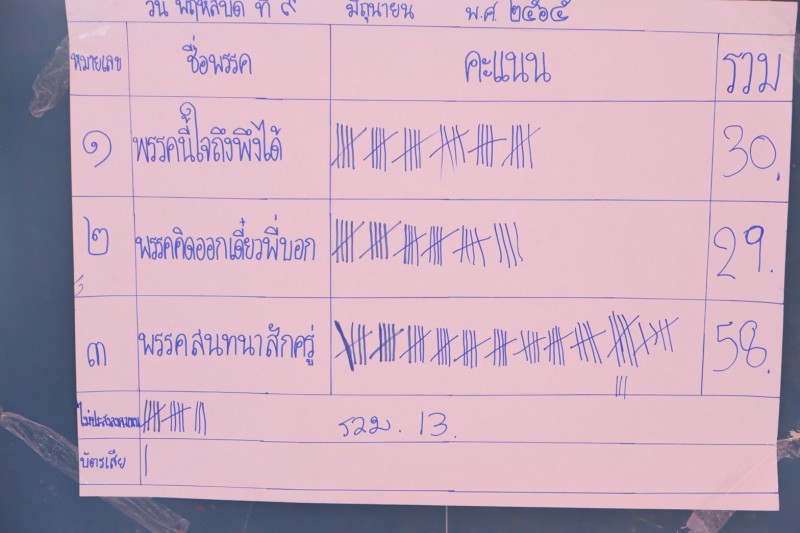 วัน พฤหัสบดี ที่ ๙ มิถุนายน พ.ศ. ๒๕๖๕
หมายเลข ชื่อพรรค คะแนน รวม
๑ พรรคนี้ใจถึงพึ่งได้ 30.
๒ พรรคคิดออกเดี๋ยวพี่บอก 29.
๓ พรรคสนทนาสักครู่ 58.
รวม. 13.
บัตรเสีย